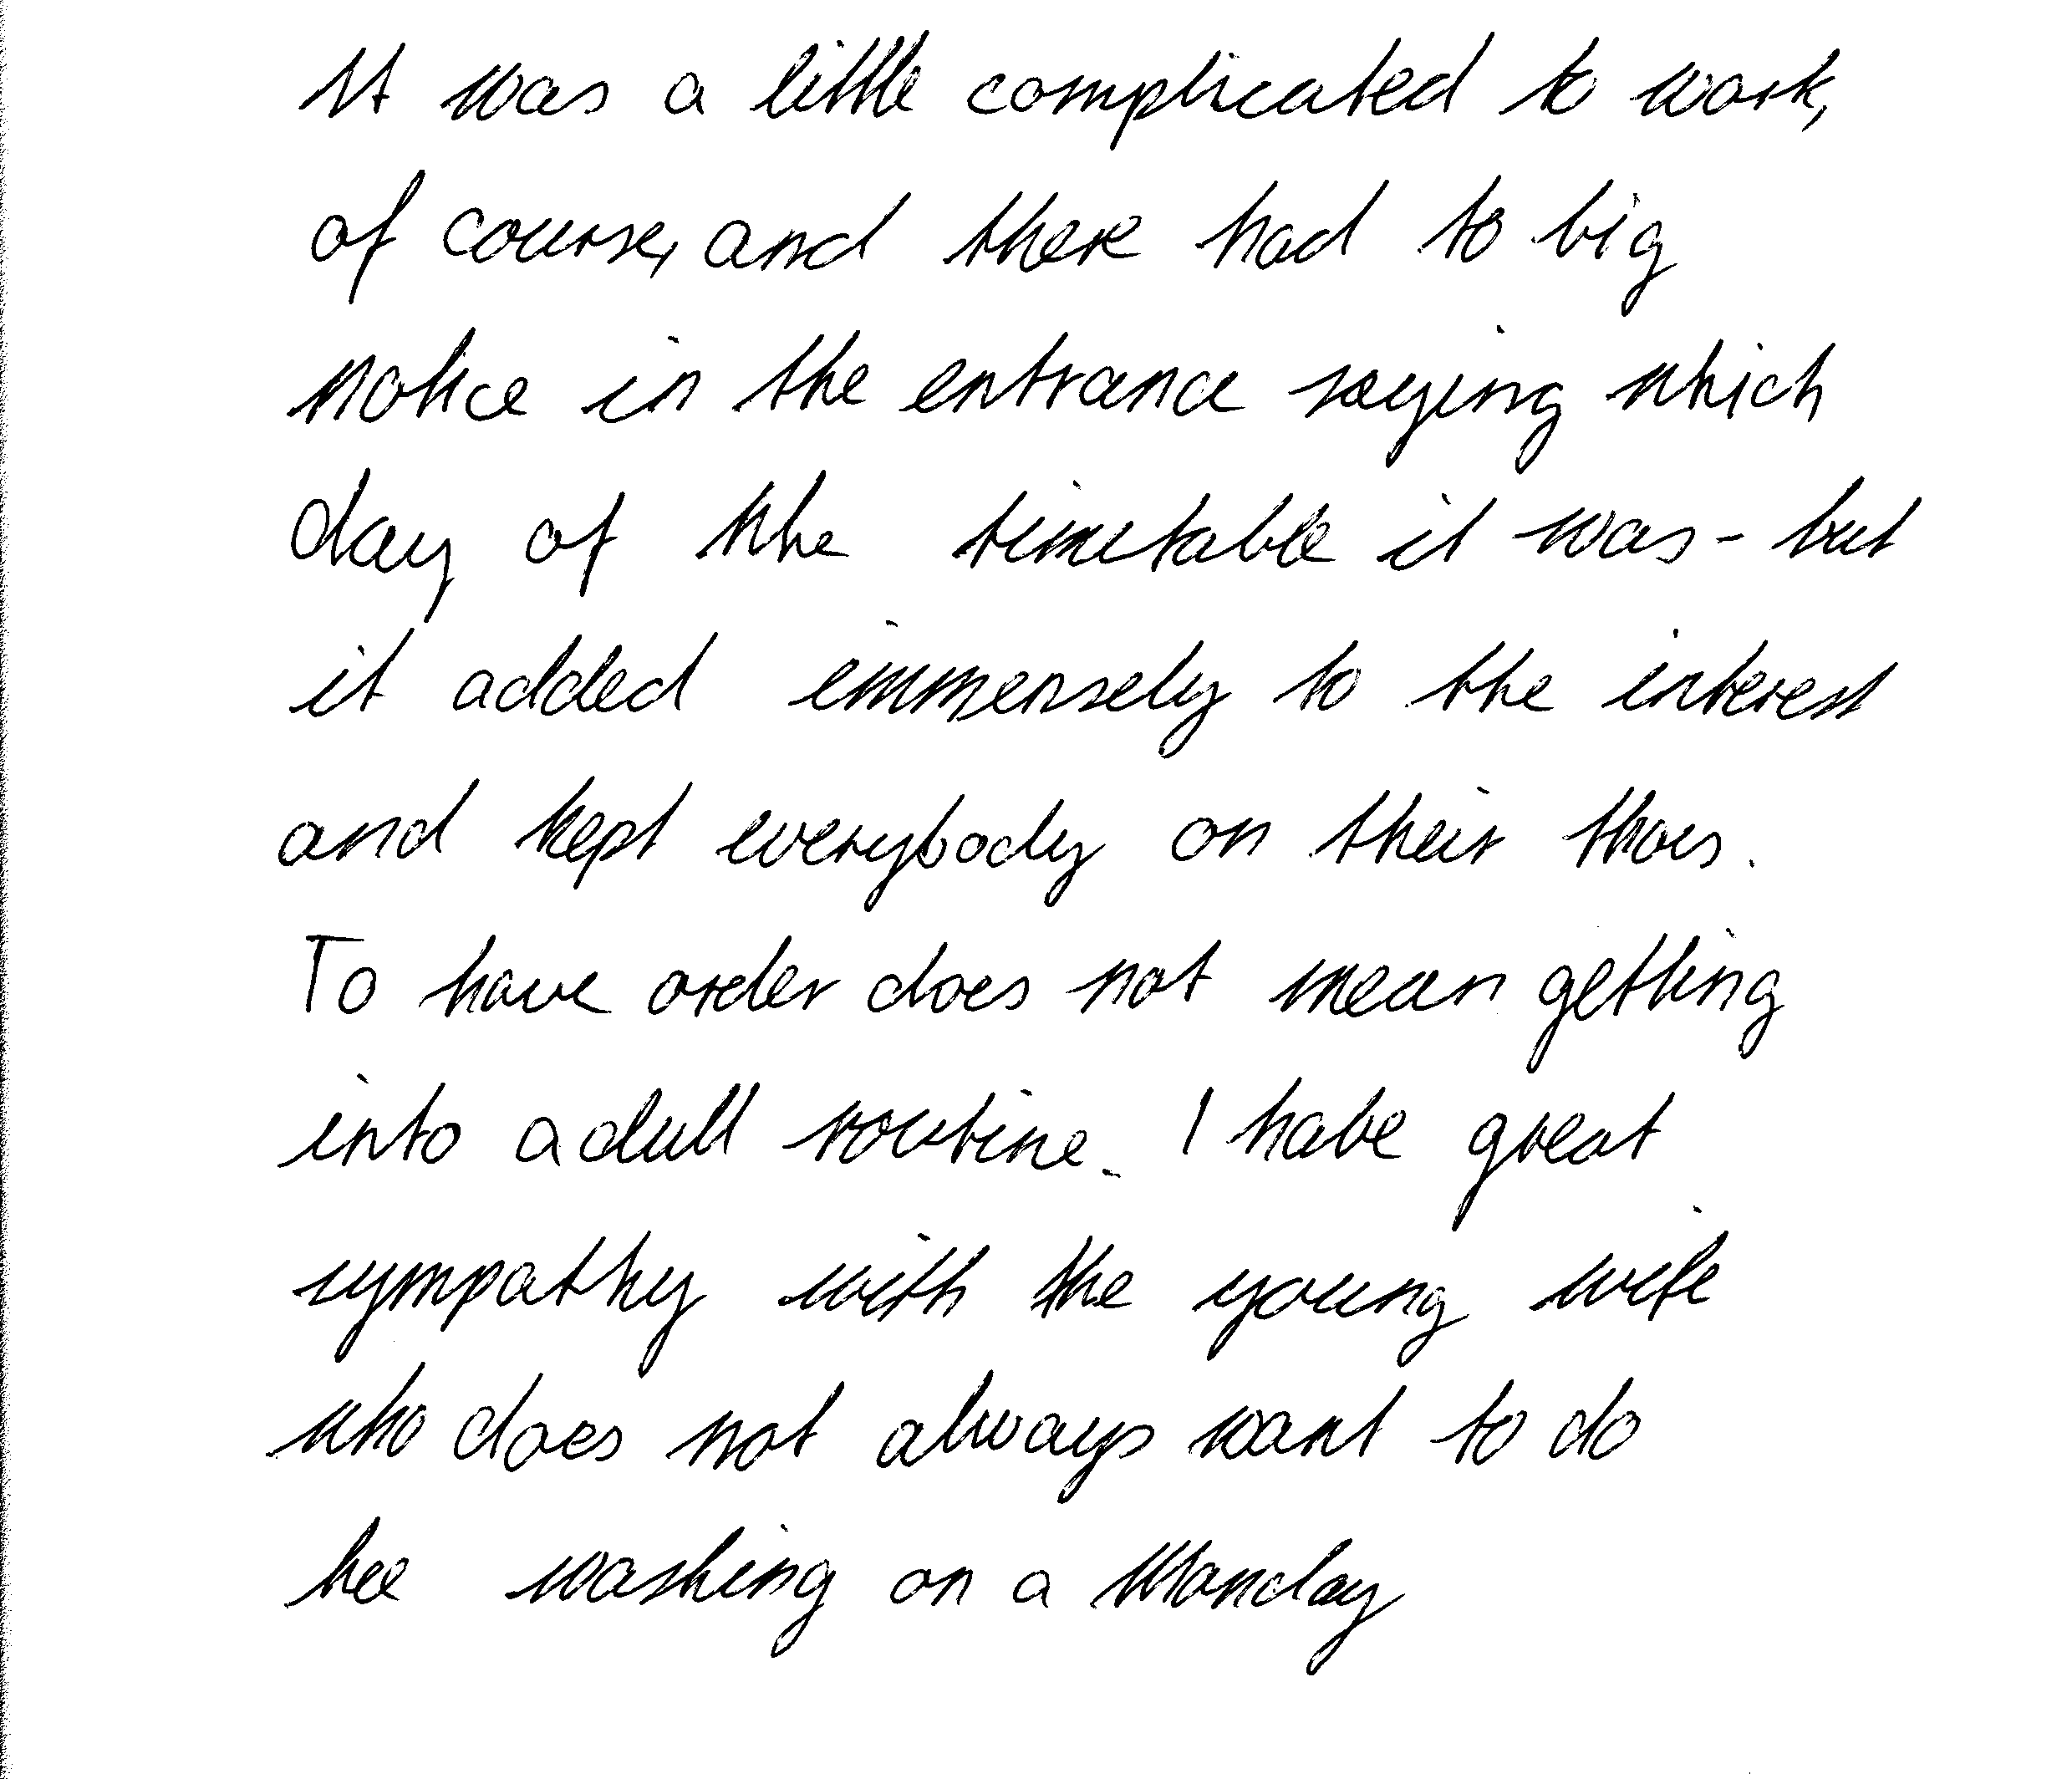 It was a little complicated to work,
of course, and there had to big
notice in the entrance saying which
day of the timetable it was - but
it added immensely to the interest
and kept everybody on their thoes.
To have order does not mean getting
into a dull routine. I have great
sympathy with the young wife
who does not always want to do
hee washing on a Monday